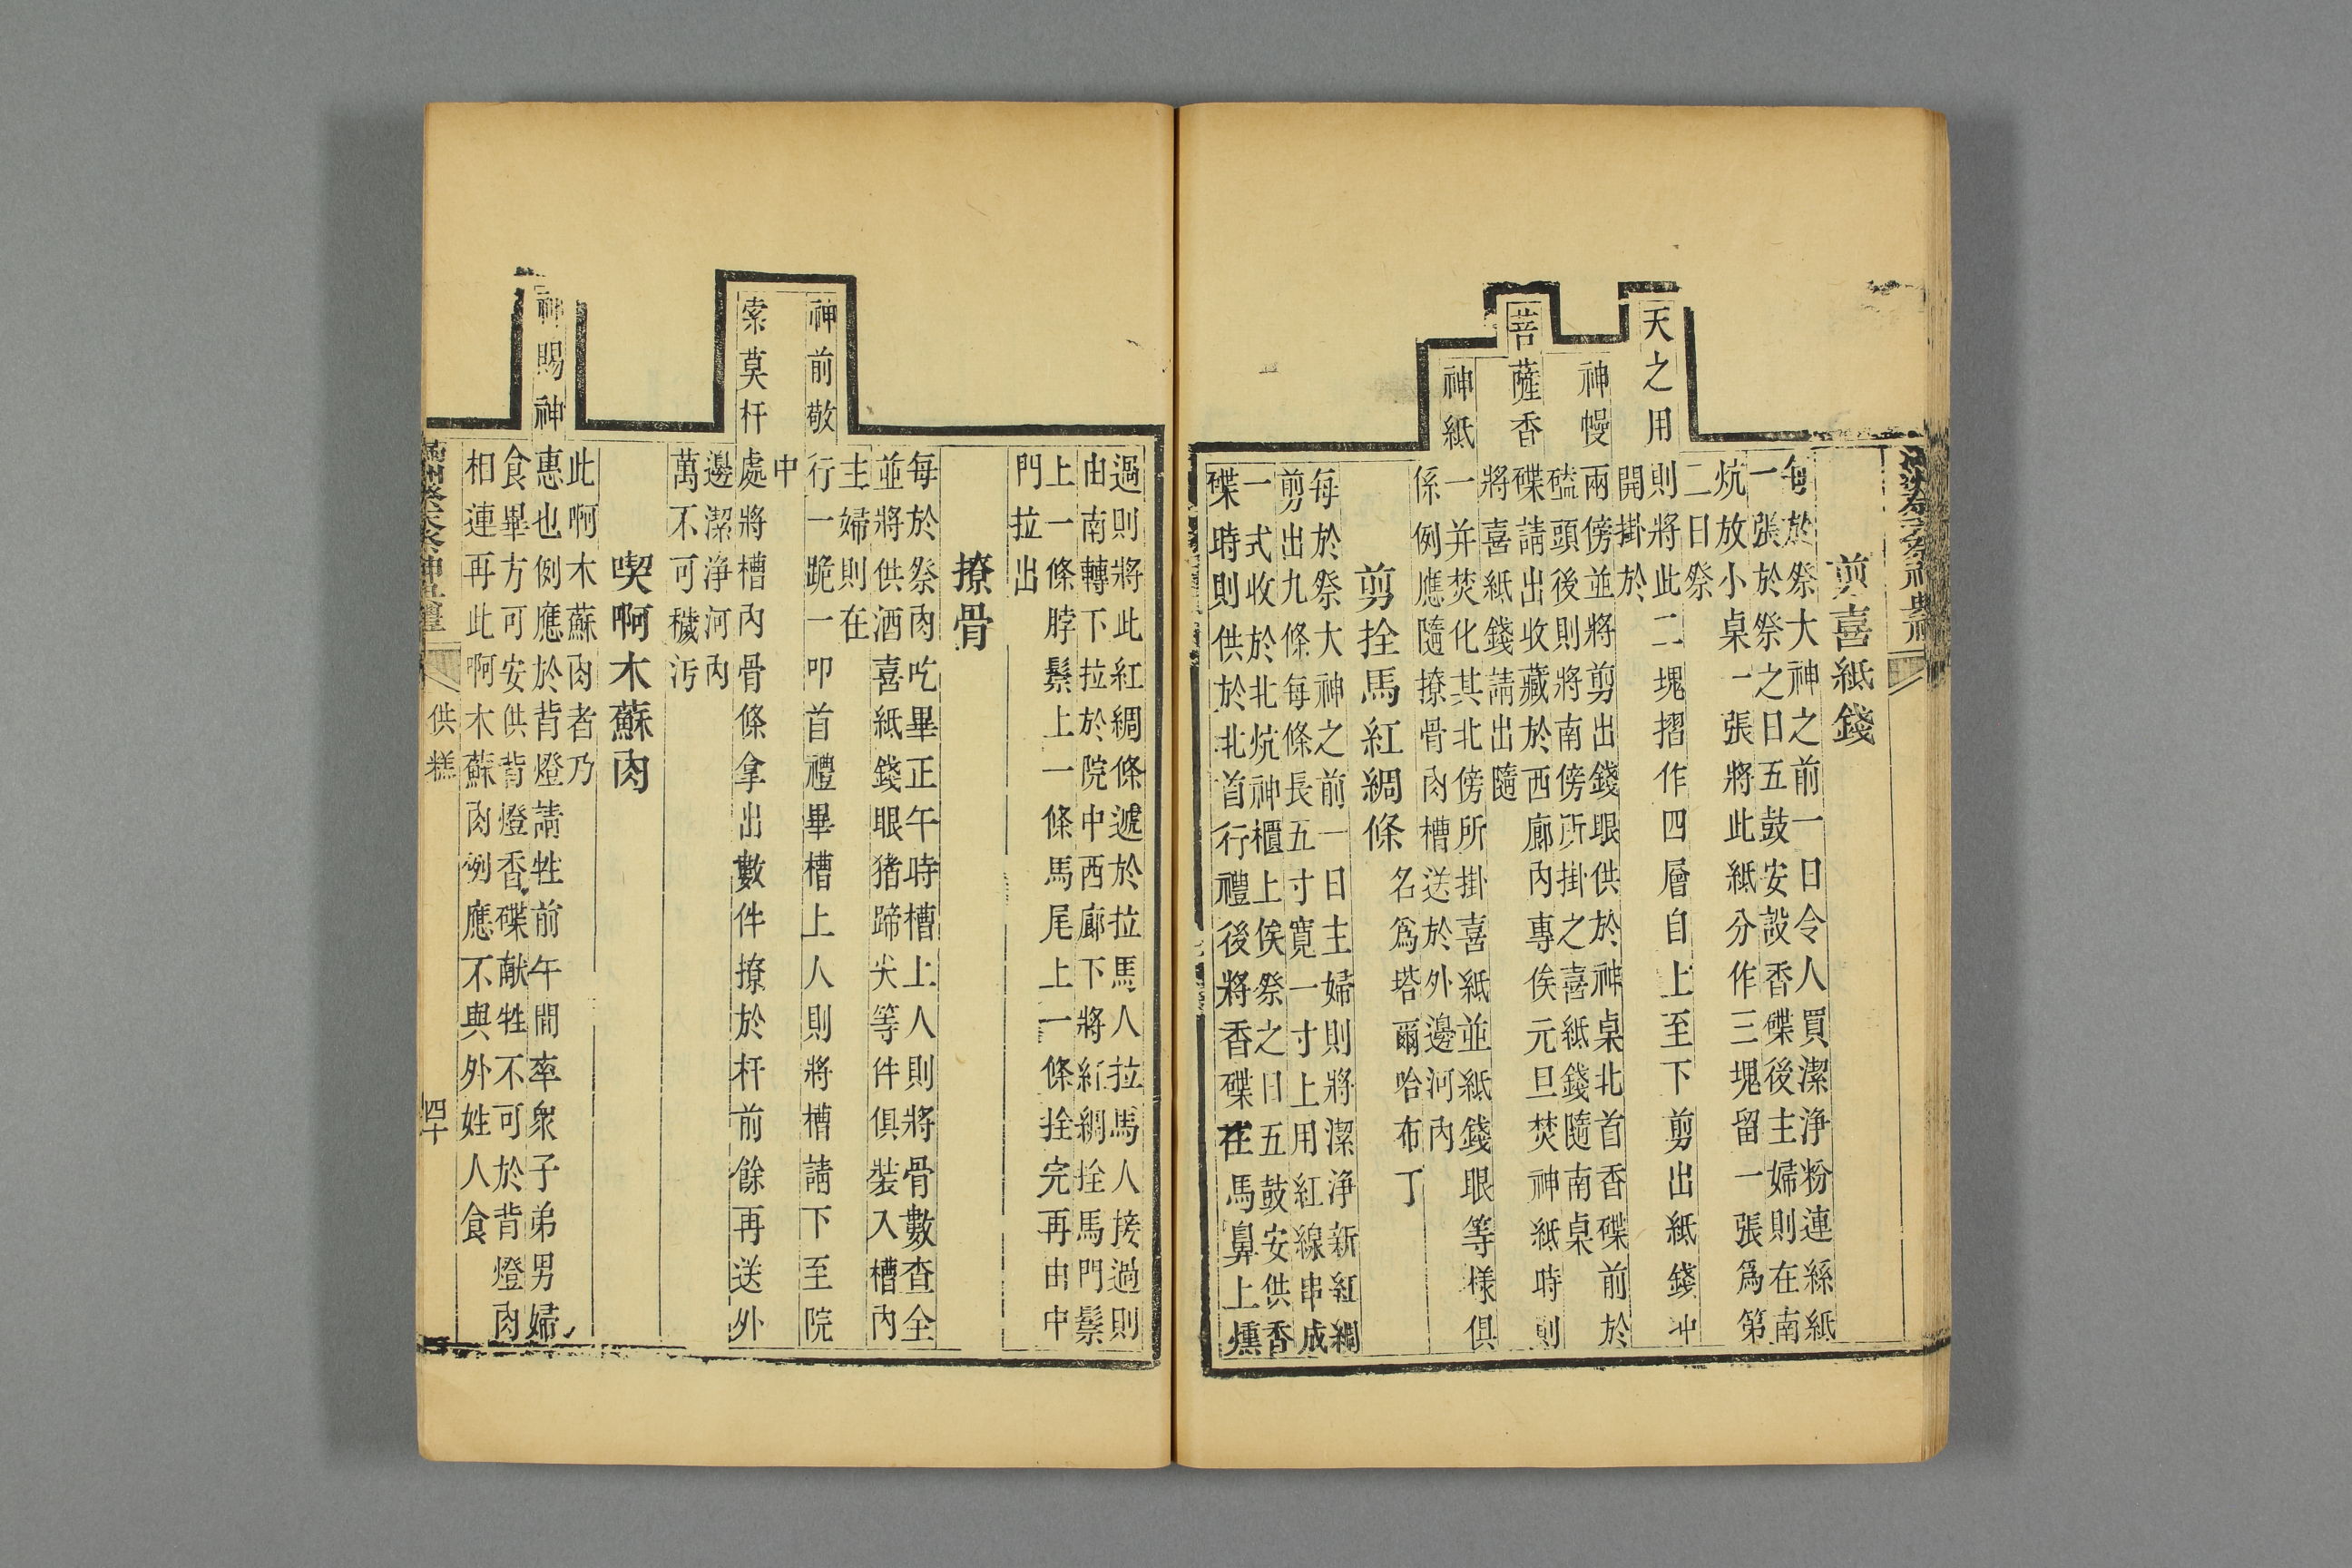 剪喜紙錢
每於祭大神之前一日令人買潔淨粉連絲紙
一張於祭之日五鼓安設香碟後主婦則在南
炕放小桌一張將此紙分作三塊留一張爲第
二日祭
天之用則將此二塊摺作四層自上至下剪出紙錢冲
開掛於
神幔兩傍並將剪出錢眼供於神桌北首香碟前於
磕頭後則將南傍所掛之喜紙錢隨南桌
菩薩香碟請出收藏於西廊內專俟元旦焚神紙時則
將喜紙錢請出隨
神紙一并焚化其北傍所掛喜紙並紙錢眼等樣俱
係例應隨撩骨肉槽送於外邊河內
剪拴馬紅綢條 名爲塔爾哈布丁
每於祭大神之前一日主婦則將潔淨新紅綢
剪出九條每條長五寸寬一寸上用紅線串成
一式收於北炕神櫃上俟祭之日五鼓安供香
碟時則供於北首行禮後將香碟在馬鼻上燻
過則將此紅綢條遞於拉馬人拉馬人接過則
由南轉下拉於院中西廊下將紅綢拴馬門鬃
上一條脖鬃上一條馬尾上一條拴完再由中
門拉出
撩骨
每於祭肉吃畢正午時槽上人則將骨數查全
並將供酒喜紙錢眼猪蹄尖等件俱裝入槽內
主婦則在
神前敬行一跪一叩首禮畢槽上人則將槽請下至院
中
索莫杆處將槽內骨條拿出數件撩於杆前餘再送外
邊潔淨河內
萬不可穢污
喫啊木蘇肉
此啊木蘇肉者乃
神賜神惠也例應於背燈請牲前午間率衆子弟男婦
食畢方可安供背燈香碟献牲不可於背燈肉
相連再此啊木蘇肉例應不與外姓人食
滿洲祭天祭神典禮 供糕 四十